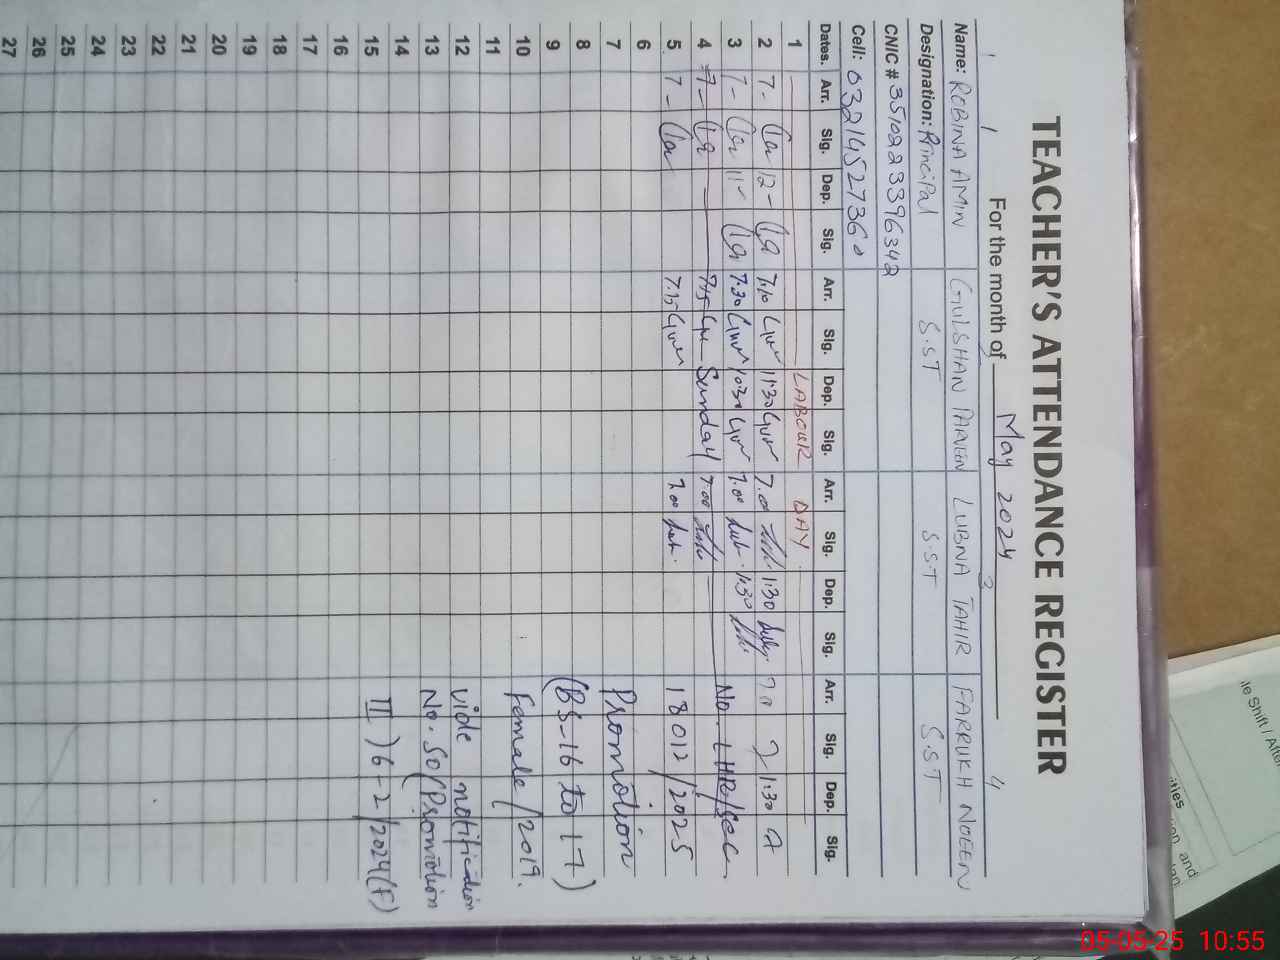 TEACHER'S ATTENDANCE REGISTER
For the month of May 2024
3 4
Name: ROBINA AMIN GULSHAN PARVEEN LUBNA TAHIR FARRUKH NOEEN
Designation: Principal S.ST S.ST S.ST
CNIC # 3510223396342
Cell: 03214527360
Dates. Arr. Sig. Dep. Sig. Arr. Sig. Dep. Sig. Arr. Sig. Dep. Sig. Arr. Sig. Dep. Sig.
1 LABOUR DAY
2 7- 12- 7.10 11:30 7.00 1:30 1:30
3 7- 11- 7.30 10:30 7.00 1:30 No. LHR/Sec
4 7- 7.15 Sunday 7.00
5 7- 7.15 7.00 18012/2025
6
7 Promotion
8 (BS-16 to 17)
9
10 Female/2019.
11
12 vide notification
13 No. SO(Promotion
14
15 III)6-2/2024(F)
16
17
18
19
20
21
22
23
24
25
26
27
le Shift / After
ities
on and
05-05-25 10:55